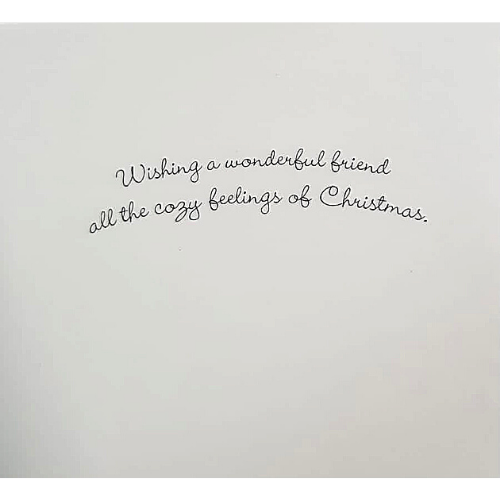 Wishing a wonderful friend
all the cozy feelings of Christmas.